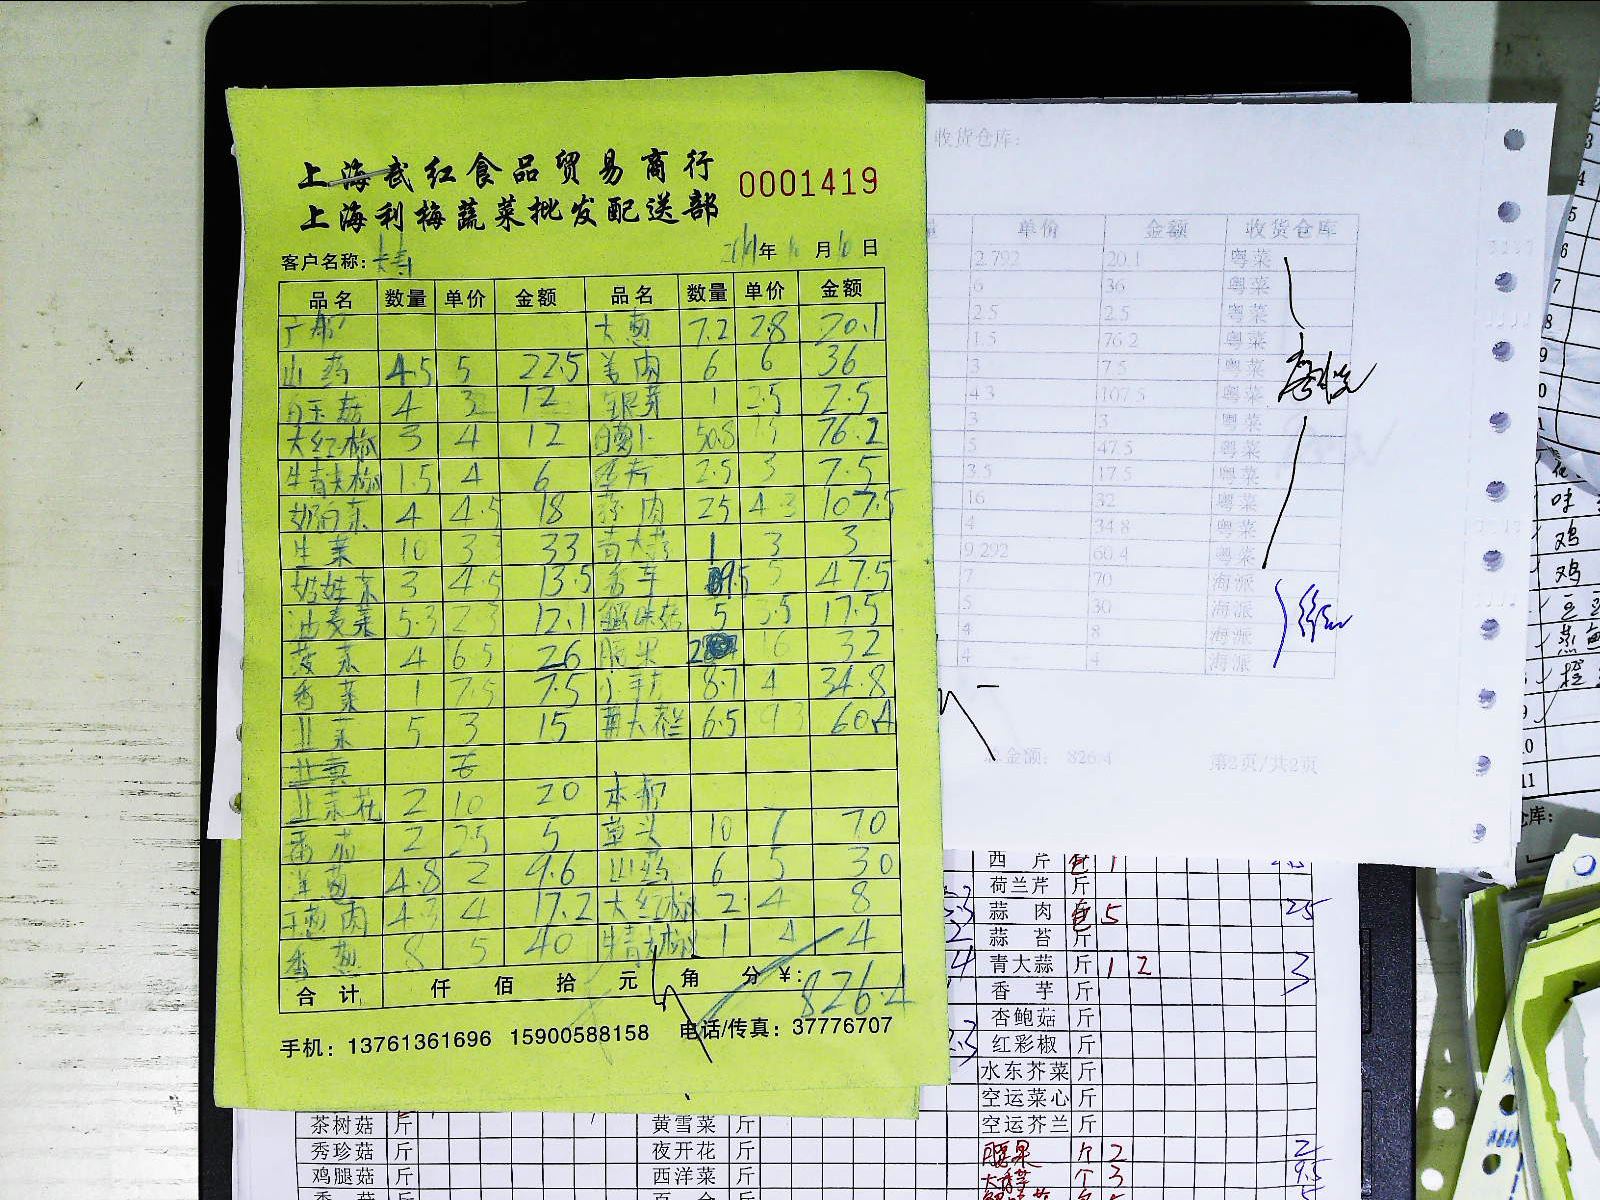 上海武红食品贸易商行
上海利梅蔬菜批发配送部
0001419
客户名称:
年 月 日
品名 数量 单价 金额 品名 数量 单价 金额
大葱 7.2 2.8 20.1
山药 4.5 5 22.5 羊肉 6 6 36
白玉菇 4 3 12 银芽 1 2.5 2.5
大红椒 3 4 12 50.8 1.5 76.2
牛青大椒 1.5 4 6 西芹 2.5 3 7.5
奶白菜 4 4.5 18 蒜肉 25 4.3 107.5
生菜 10 3.3 33 青大蒜 1 3 3
娃娃菜 3 4.5 13.5 9.5 5 47.5
油麦菜 5.3 2.3 12.1 5 3.5 17.5
菠菜 4 6.5 26 腰果 2 16 32
香菜 1 7.5 7.5 小芋艿 8.7 4 34.8
韭菜 5 3 15 6.5 9.3 60.4
韭黄
韭菜花 2 10 20 本帮
番茄 2 2.5 5 草头 10 7 70
洋葱 4.8 2 9.6 山药 6 5 30
干葱肉 4.3 4 17.2 大红椒 2 4 8
香葱 8 5 40 牛青大椒 1 4 4
合计 仟 佰 拾 元 角 分 ¥: 826.4
手机: 13761361696 15900588158 电话/传真: 37776707
收货仓库:
单价 金额 收货仓库
2.792 20.1 粤菜
6 36 粤菜
2.5 2.5 粤菜
1.5 76.2 粤菜
3 7.5 粤菜
4.3 107.5 粤菜
3 3 粤菜
5 47.5 粤菜
3.5 17.5 粤菜
16 32 粤菜
4 34.8 粤菜
9.292 60.4 粤菜
7 70 海派
5 30 海派
4 8 海派
4 4 海派
总金额: 826.4 第2页/共2页
西芹 1
荷兰芹 斤
蒜肉 5 25
蒜苔 斤
青大蒜 斤 1 2 3
香芋 斤
杏鲍菇 斤
红彩椒 斤
水东芥菜 斤
空运菜心 斤
空运芥兰 斤
茶树菇 斤 黄雪菜 斤
秀珍菇 斤 夜开花 斤 腰果 个 2 2
鸡腿菇 斤 西洋菜 斤 个 3 9.5